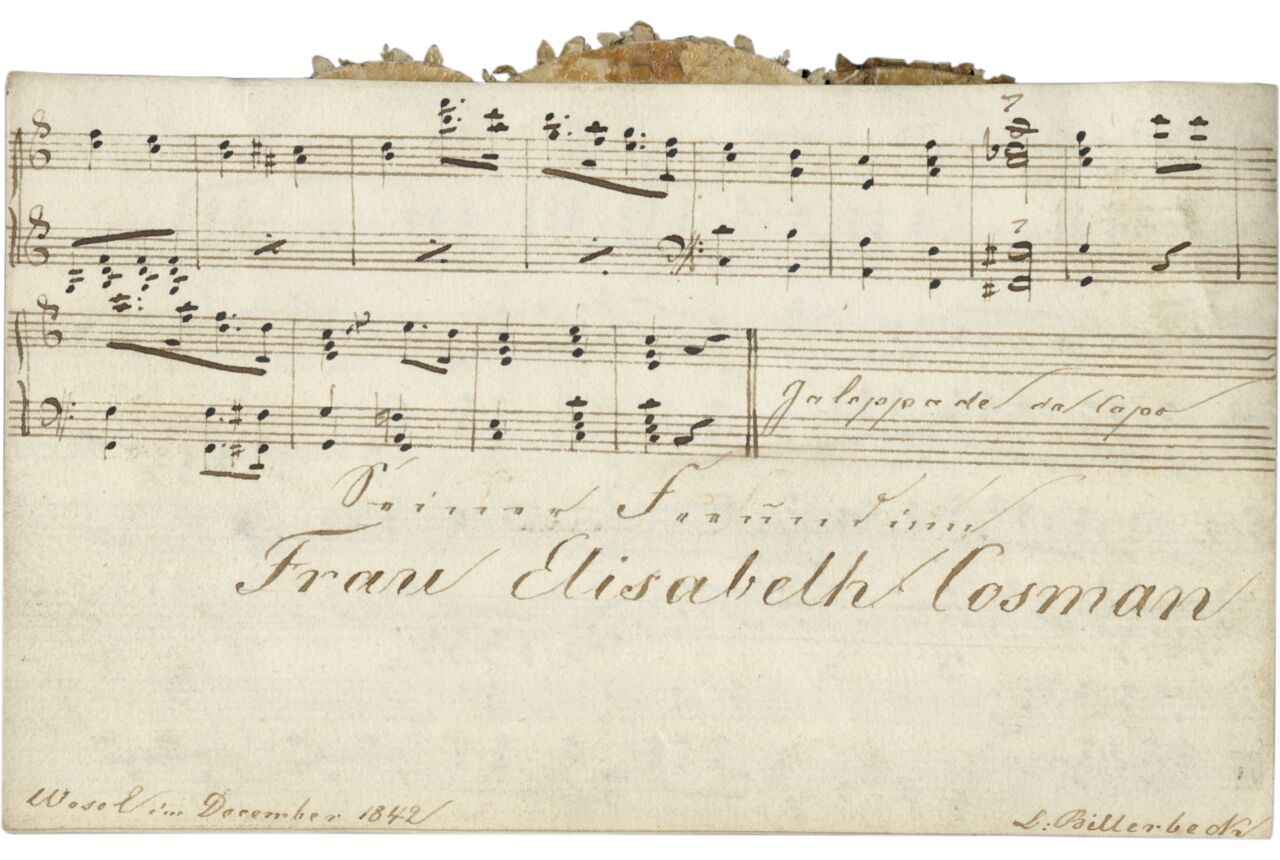 Galoppade da Capo
Seiner Freundinn
Frau Elisabeth Cosman
Wesel im December 1842
L: Billerbeck